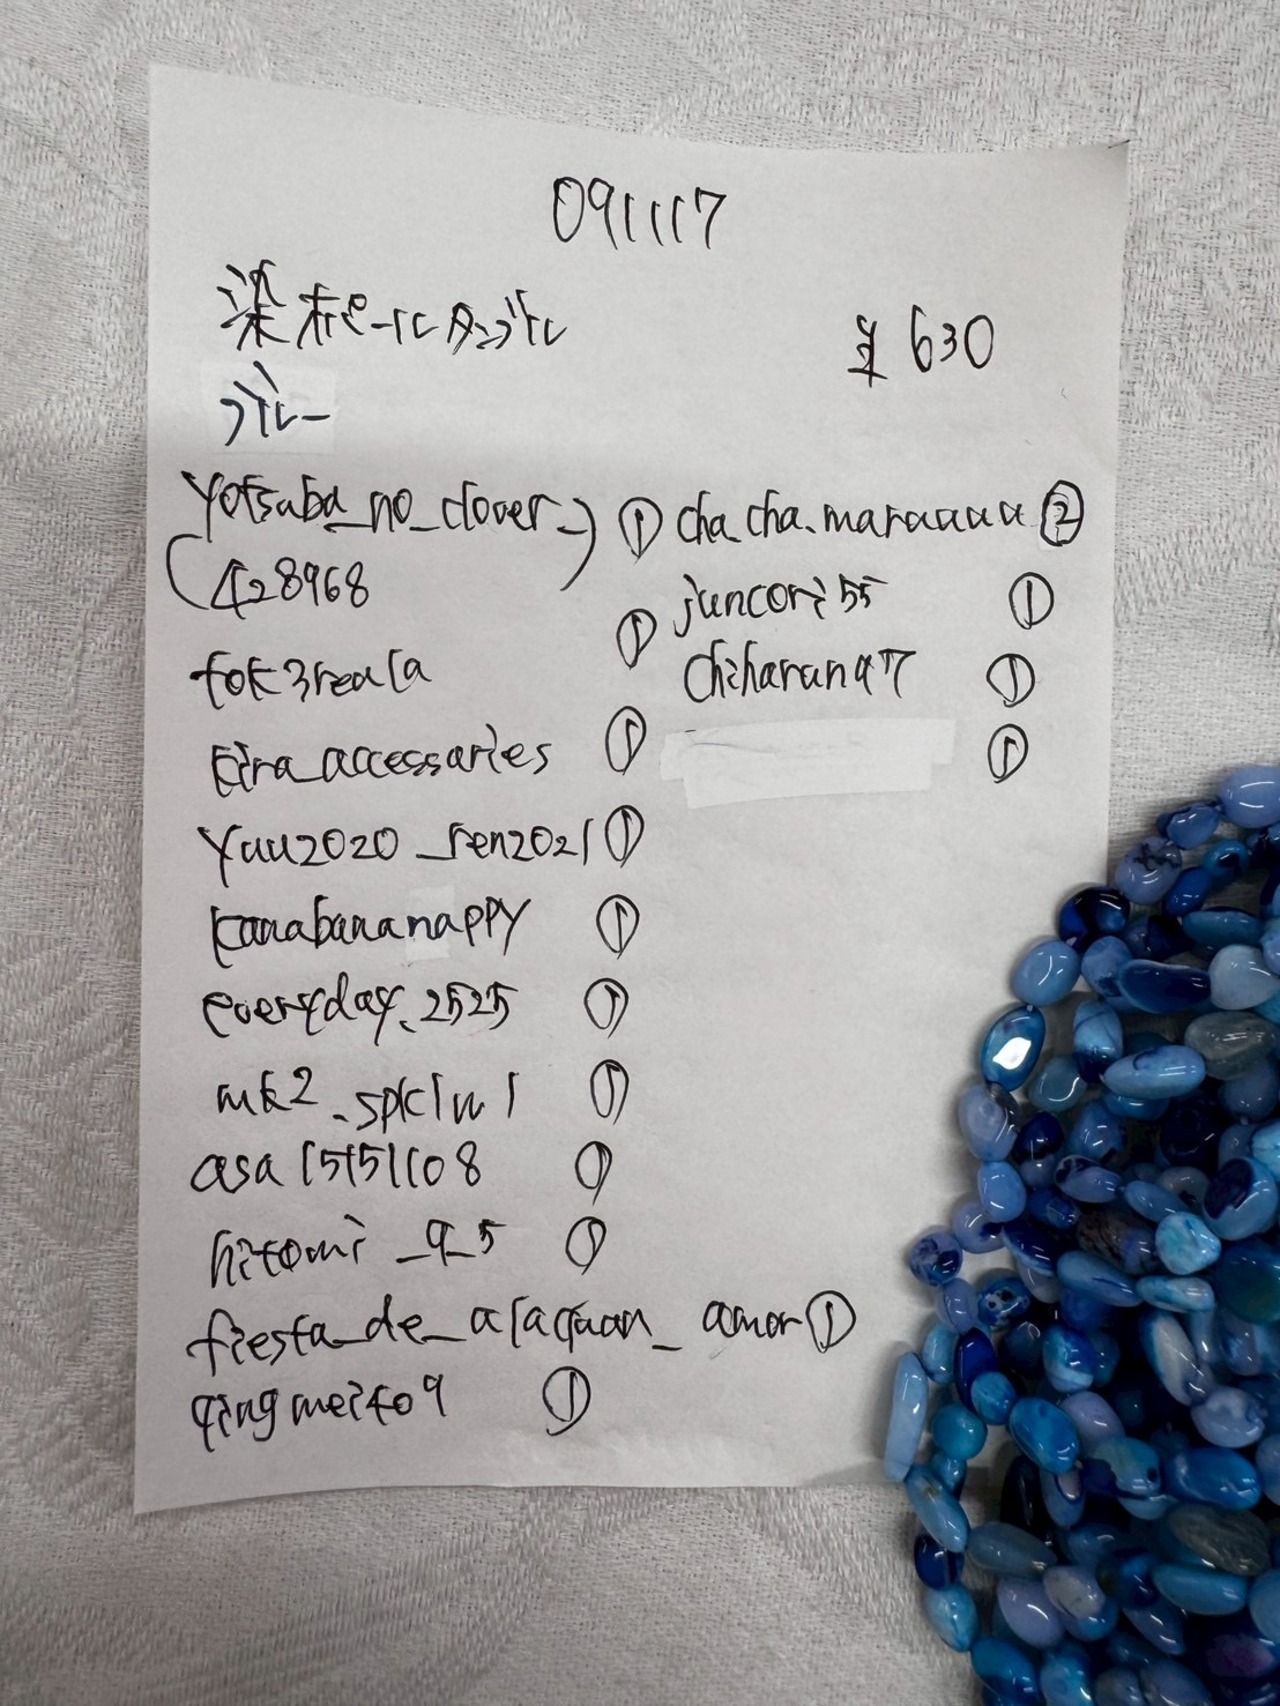 091117
染めパールタンブル
ブルー
¥630
yotsuba_no_clover_
428968 ①
tok3reala ①
kira_accessaries ①
yuu2020_ren2021 ①
kanabananappy ①
everyday.2525 ①
mk2_spk1w1 ①
asa15151108 ①
hitomi_9_5 ①
fiesta_de_alacquan_amor ①
qingmeito9 ①
cha.cha.maraaaa ②
juncori55 ①
chiharuna7 ①
①